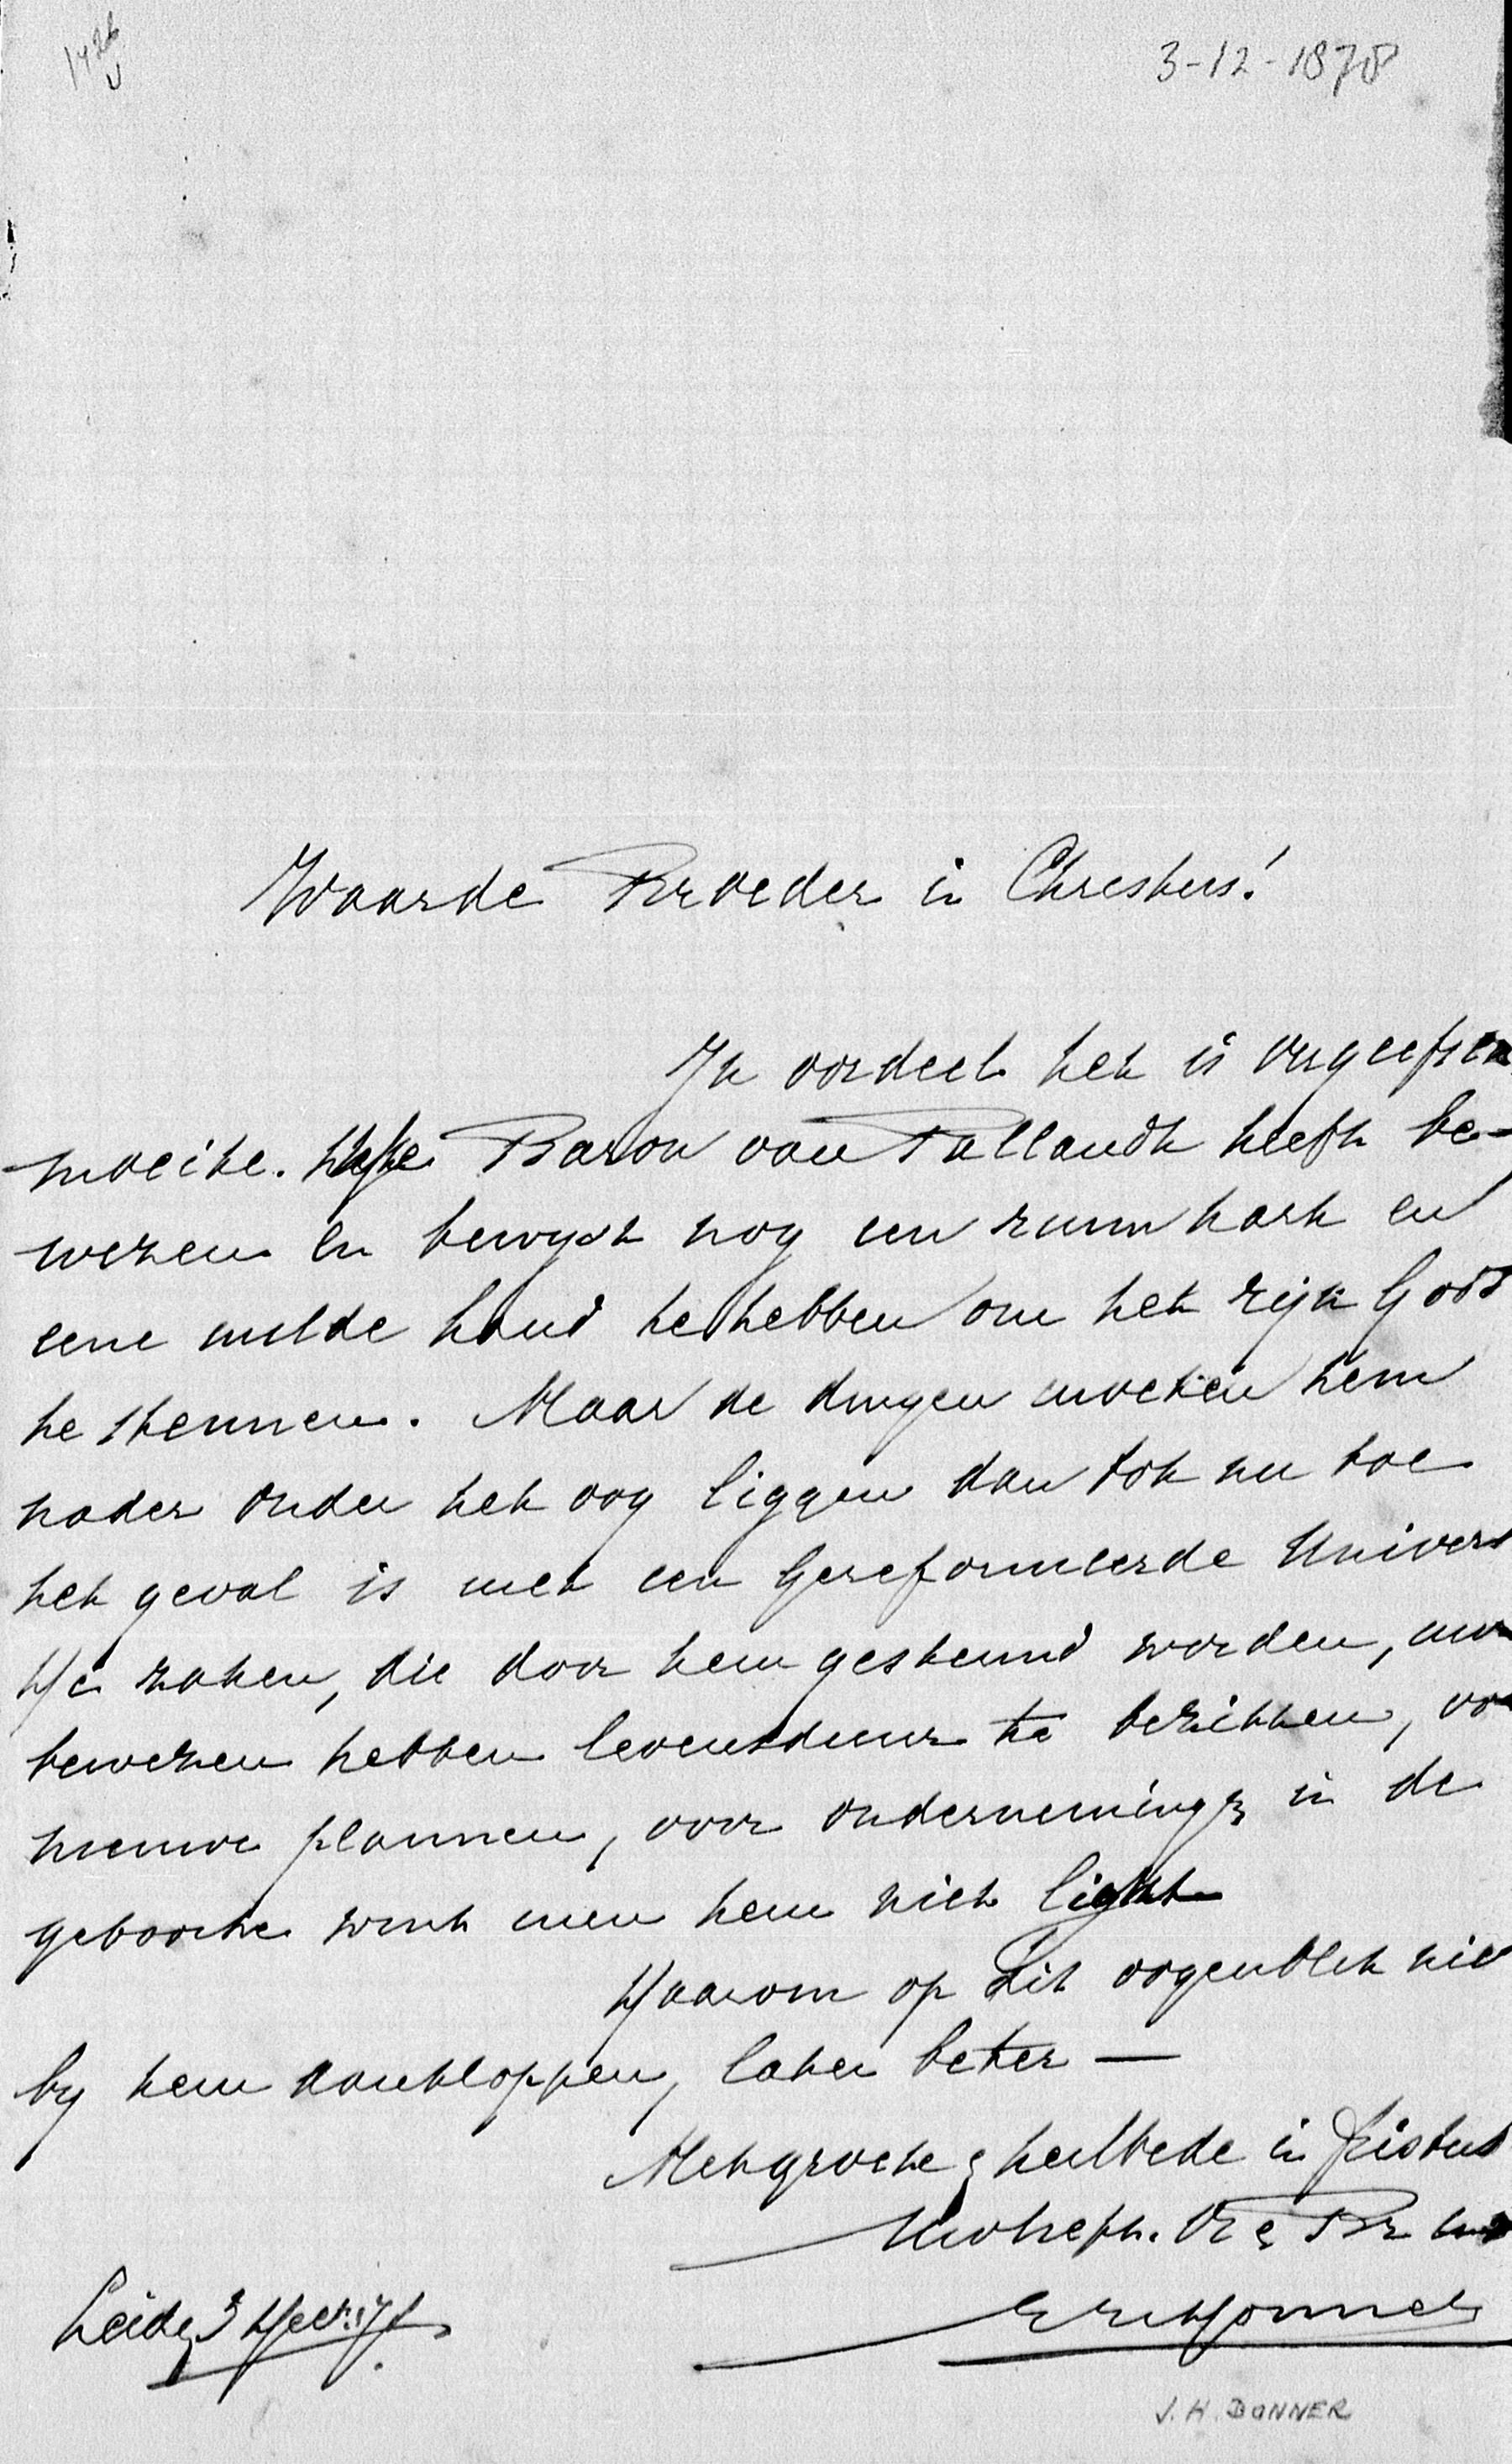 1426
3-12-1878
Waarde Broeder in Christus!
Ik oordeel het is vergeefsche
moeite. Baron van Pallandt heeft be-
wezen en bewijst nog een ruim hart en
eene milde hand te hebben om het rijk Gods
te steunen. Maar de dingen moeten hem
nader onder het oog liggen dan tot nu toe
het geval is met een Gereformeerde Univers
De zaken, die door hem gesteund worden,
bewezen hebben levensduur te bezitten, vo
nieuwe plannen, voor ondernemingn in de
geboorte wint men hem niet licht
Daarom op dit oogenblik nie
by hem aankloppen, later beter —
Met groete & heilbede in Christus
Uw
JH Donner
Leiden 3 Dec: 78
J. H. DONNER